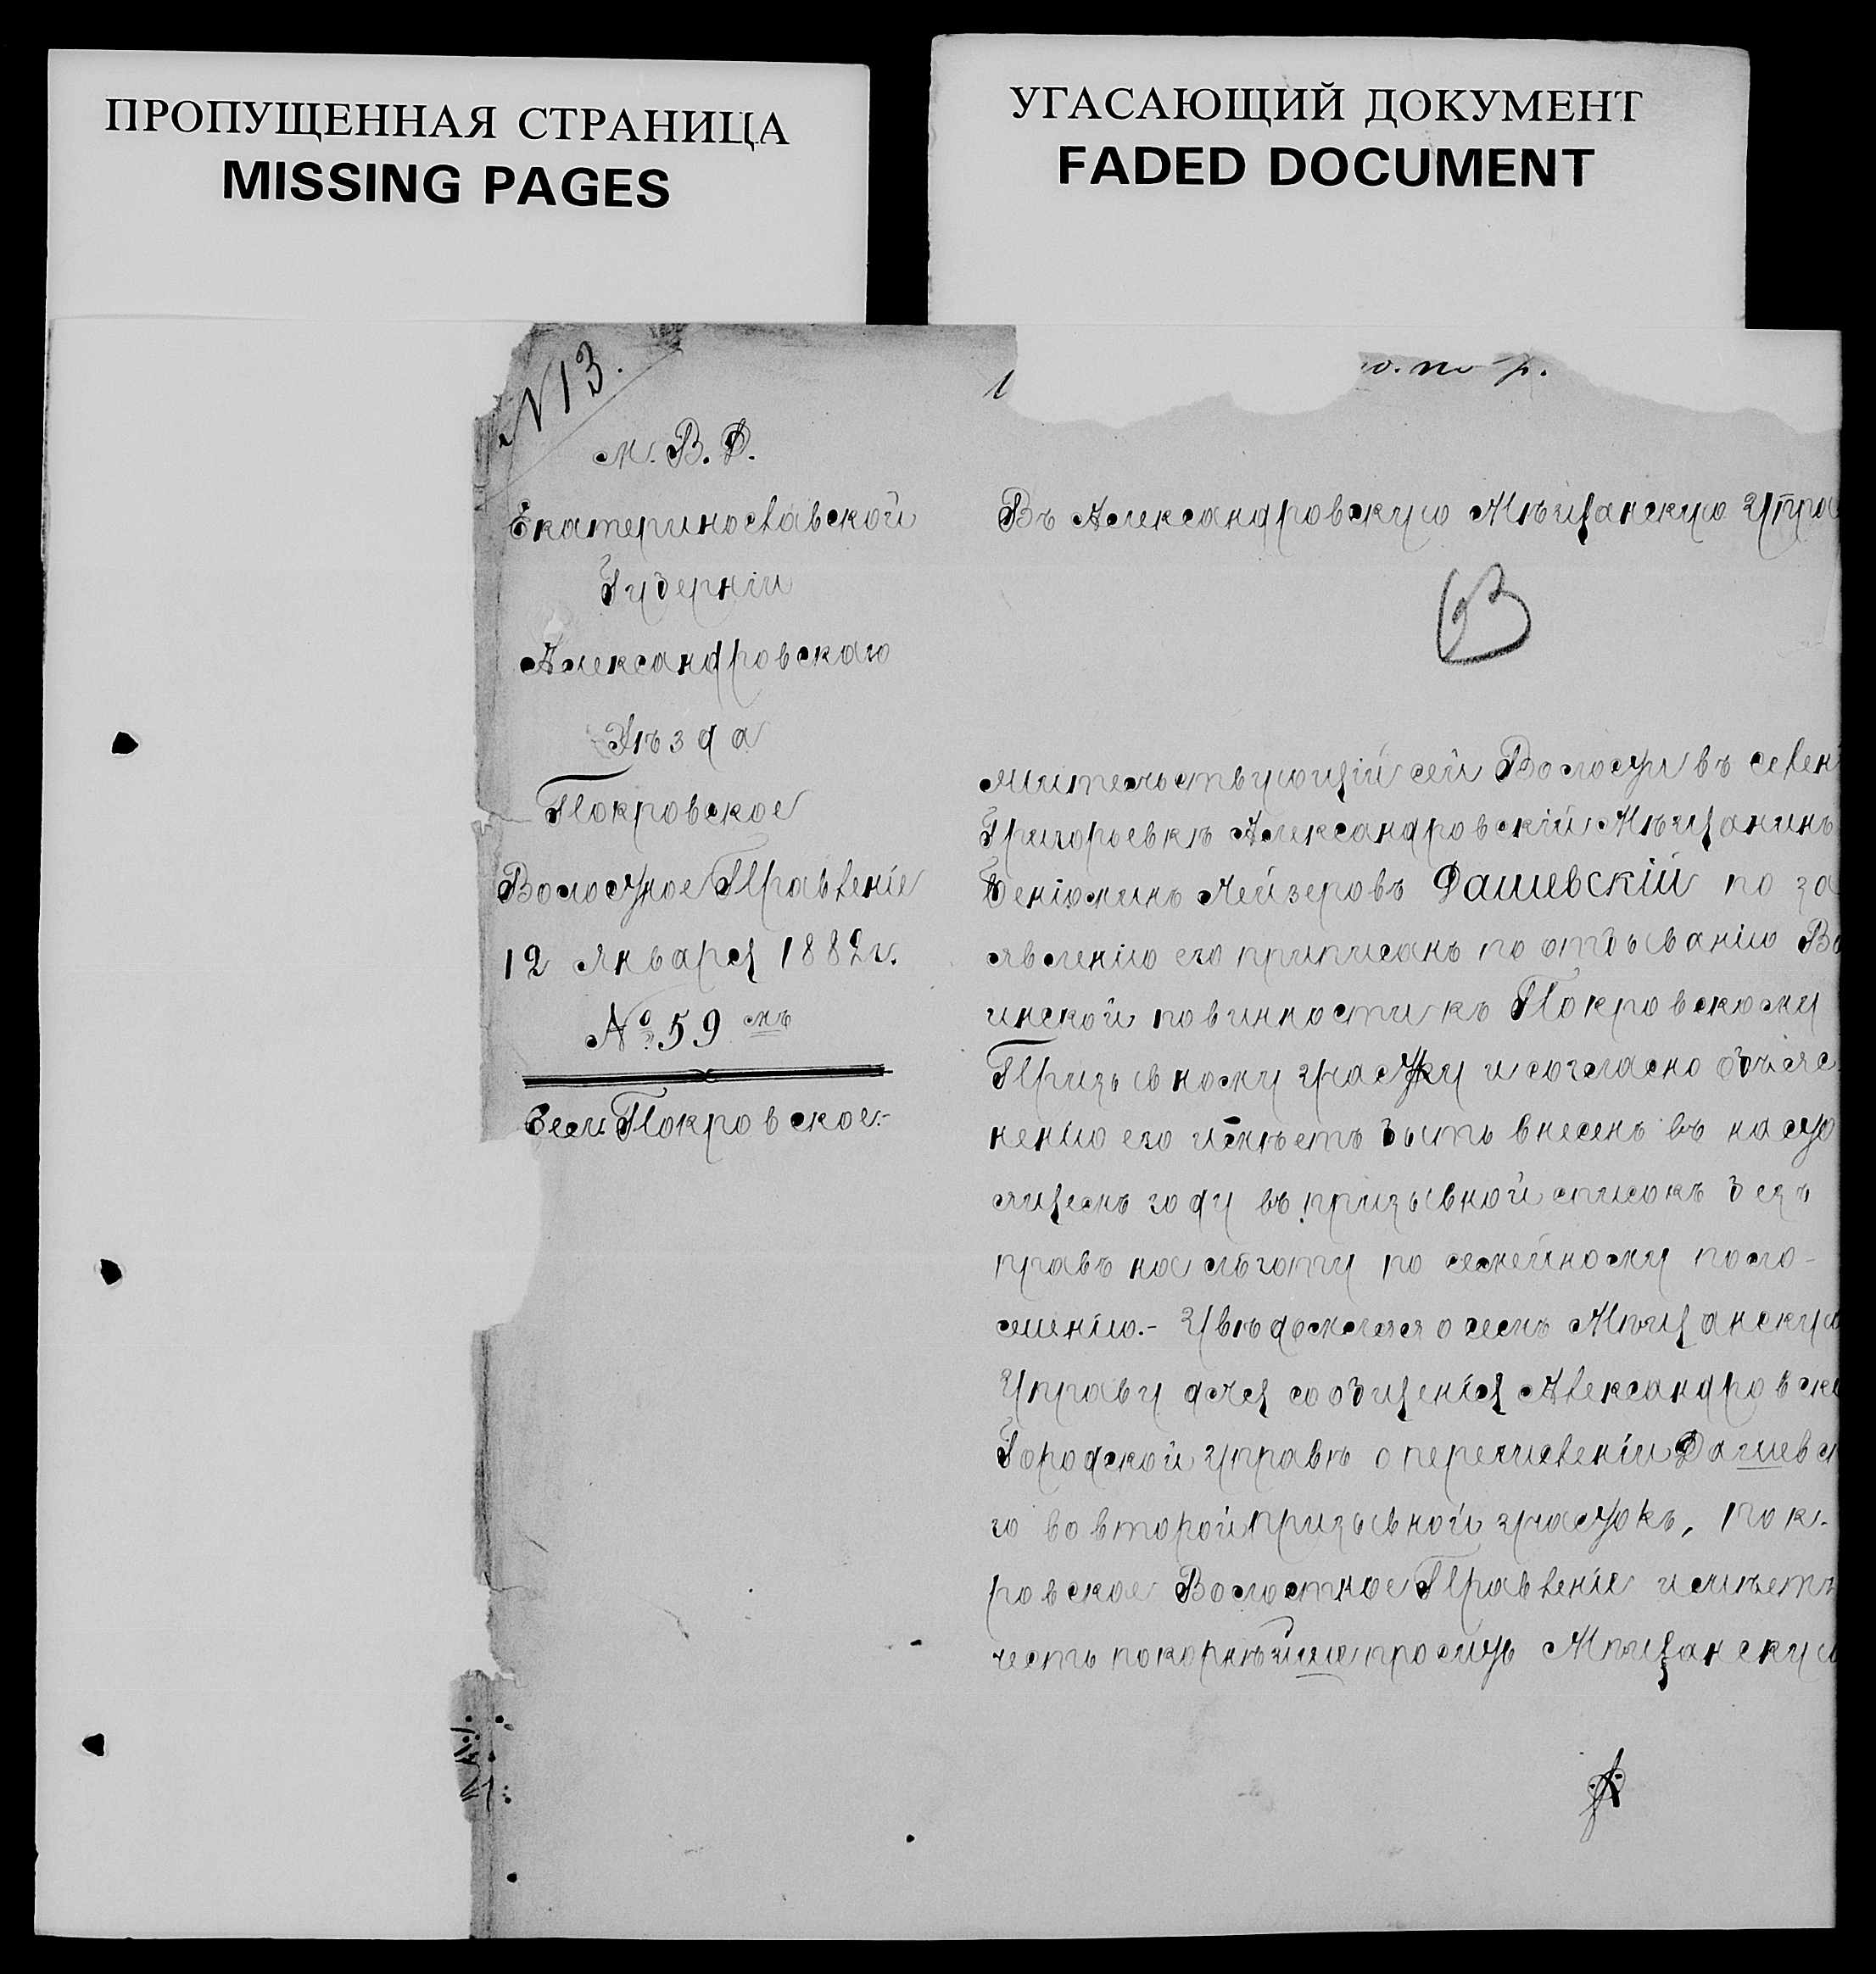 ПРОПУЩЕННАЯ СТРАНИЦА
MISSING PAGES
УГАСАЮЩИЙ ДОКУМЕНТ
FADED DOCUMENT
N 13.
М. В. Д.
Екатеринославской
Губерніи
Александровскаго
Уѣзда
Покровское
Волостное Правленіе
12 Января 1882 г.
№ 59
Село Покровское.-
Въ Александровскую Мѣщанскую Упра
Жительствующій сей Волости въ селен
Григорьевкѣ Александровскій Мѣщанинъ
Беніоминъ Лейзеровъ Дашевскій по за
явленію его приписанъ по отбыванію Во
инской повинности къ Покровскому
Призывному участку и согласно объяс
ненію его имѣетъ быть внесенъ въ насто
ящемъ году въ призывной списокъ безъ
правъ на льготу по семейному поло-
женію.- Увѣдомляя о семъ Мѣщанскую
Управу для сообщенія Александровско
Городской Управѣ о перечисленіи Дашевск
го во второй призывной участокъ, Пок-
ровское Волостное Правленіе имѣетъ
честь покорнѣйше просить Мѣщанскую